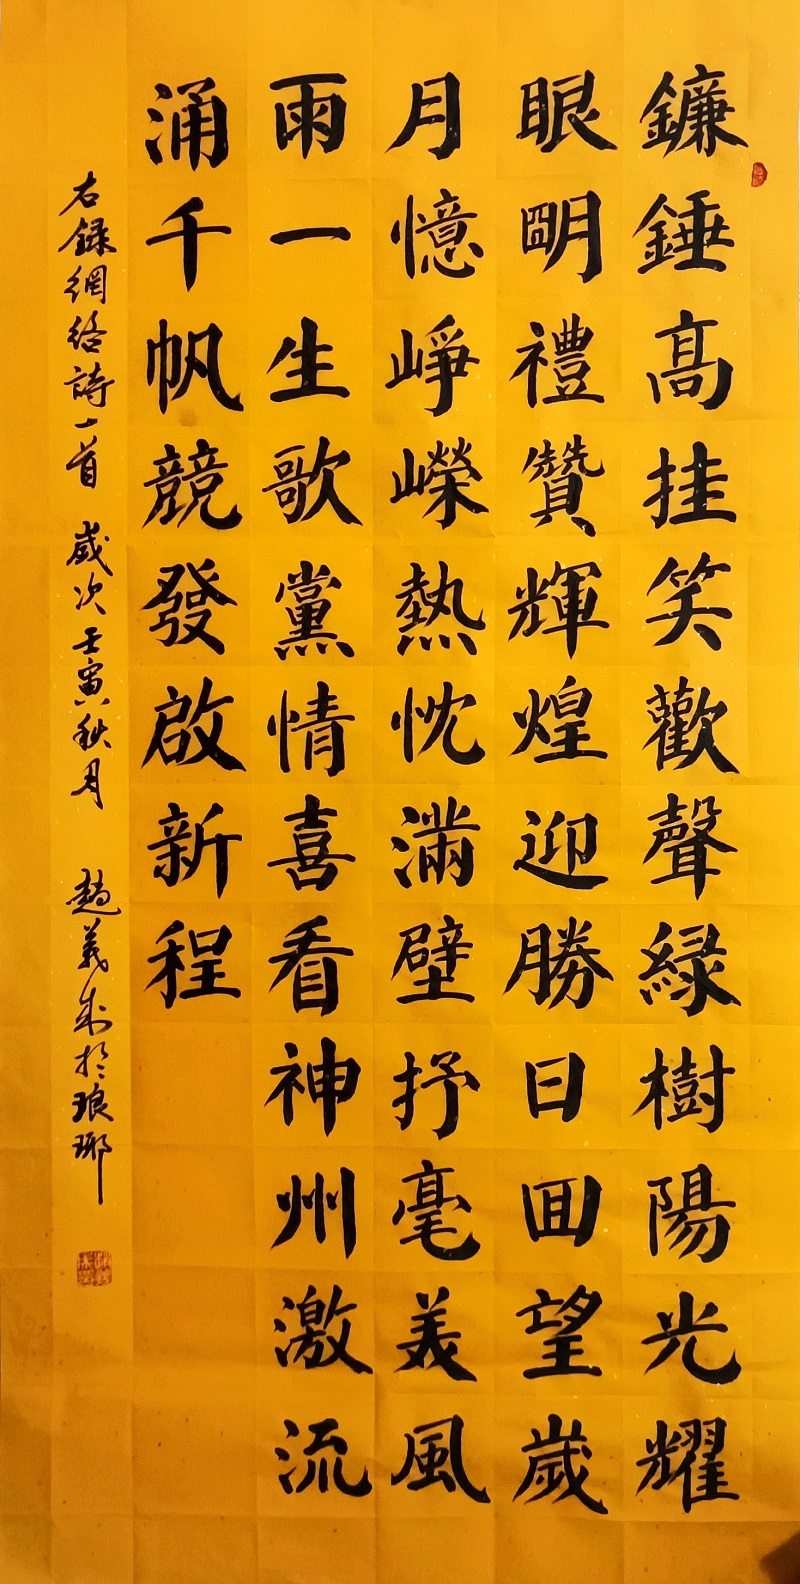 鐮錘高挂笑歡聲綠樹陽光耀
眼明禮贊輝煌迎勝日回望歲
月憶崢嶸熱忱滿壁抒毫美風
雨一生歌黨情喜看神州激流
涌千帆競發啟新程
右錄網絡詩一首 歲次壬寅秋月 趙義成於琅琊